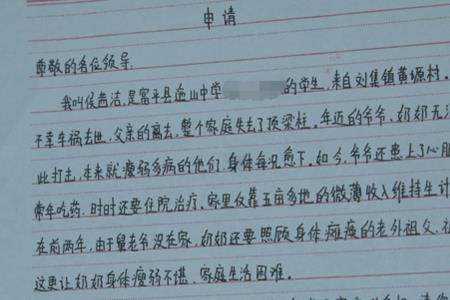 申请
尊敬的各位领导:
我叫侯茜洁,是富平县迤山中学 的学生,来自刘集镇黄塬村。
不幸车祸去世,父亲的离去,整个家庭失去了顶梁柱。年迈的爷爷、奶奶无法
此打击,本来就瘦弱多病的他们,身体每况愈下。如今,爷爷还患上了心脏
常年吃药,时时还要住院治疗。家里仅靠五亩多地的微薄收入维持生计
在前两年,由于舅老爷没在家,奶奶还要照顾身体瘫痪的老外祖父,
这更让奶奶身体瘦弱不堪,家庭生活困难。